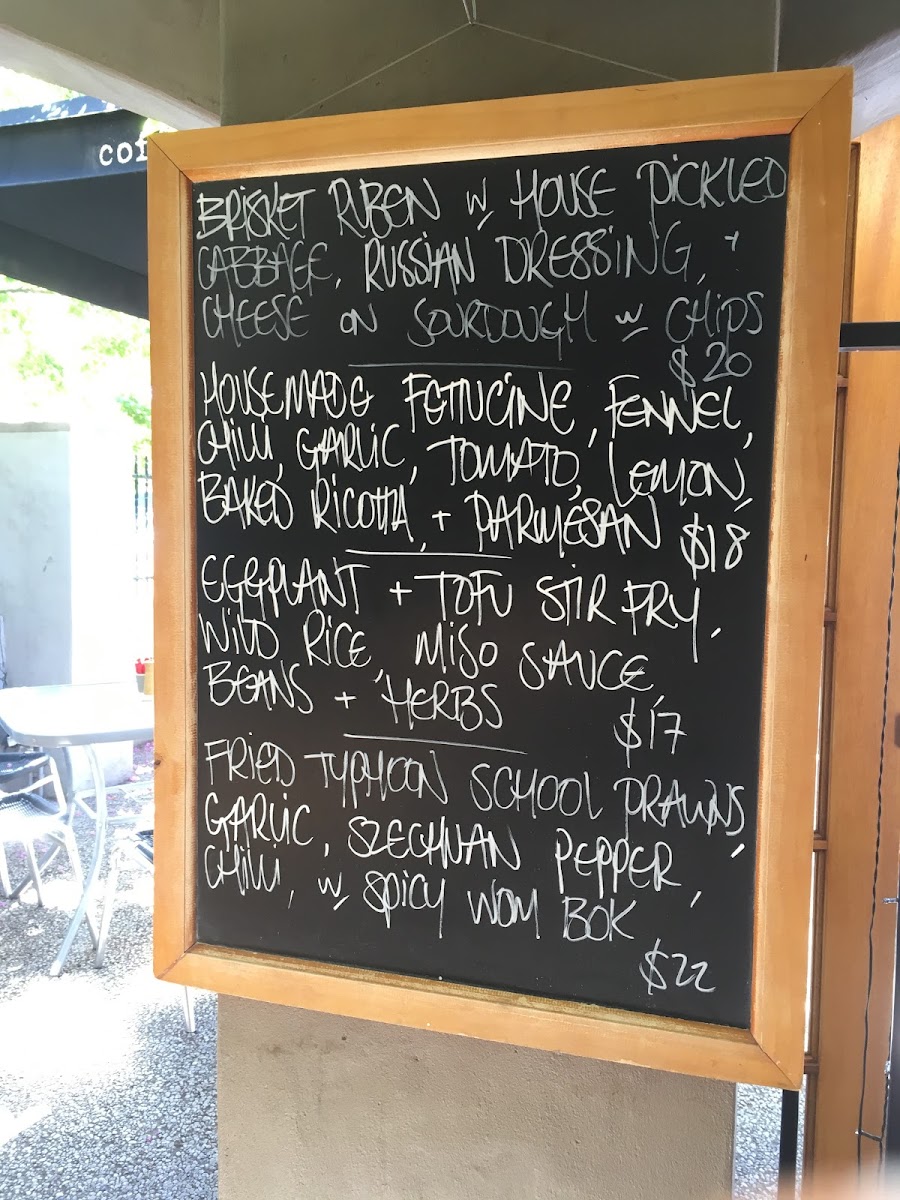 cof
BRISKET RUBEN w HOUSE PICKLED
CABBAGE, RUSSIAN DRESSING, +
CHEESE ON SOURDOUGH w CHIPS
$20
HOUSEMADE FETUCINE, FENNEL,
CHILLI, GARLIC, TOMATO, LEMON,
BAKED RICOTTA, + PARMESAN $18
EGGPLANT + TOFU STIR FRY,
WILD RICE, MISO SAUCE,
BEANS + HERBS
$17
FRIED TYPHOON SCHOOL PRAWNS,
GARLIC, SZECHUAN PEPPER,
CHILLI, w SPICY WOM BOK
$22